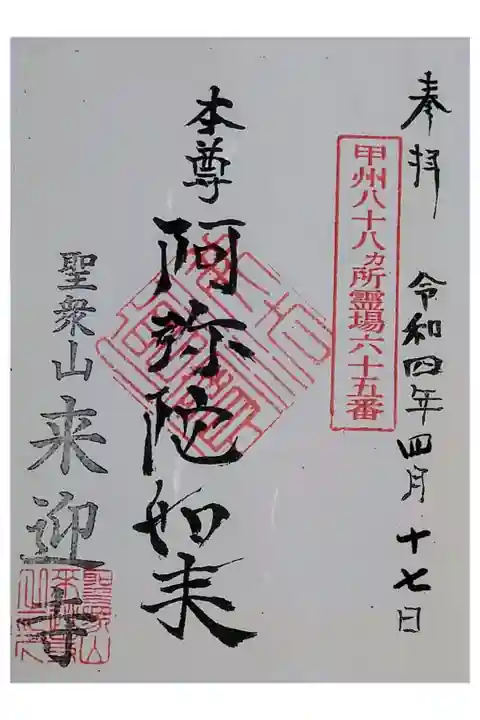 奉拝
令和四年四月十七日
甲州八十八ヵ所霊場六十五番
本尊
阿弥陀如来
聖衆山
来迎寺